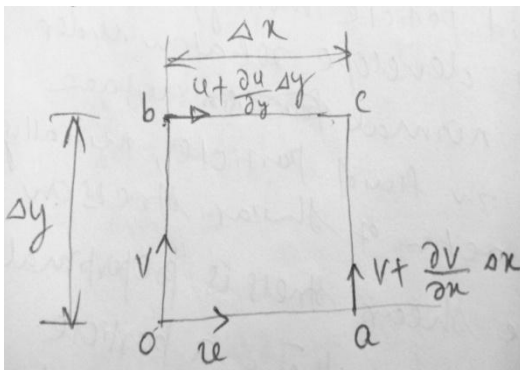 Δx
b u + ∂u/∂y Δy c
Δy
V V + ∂V/∂x Δx
O u a